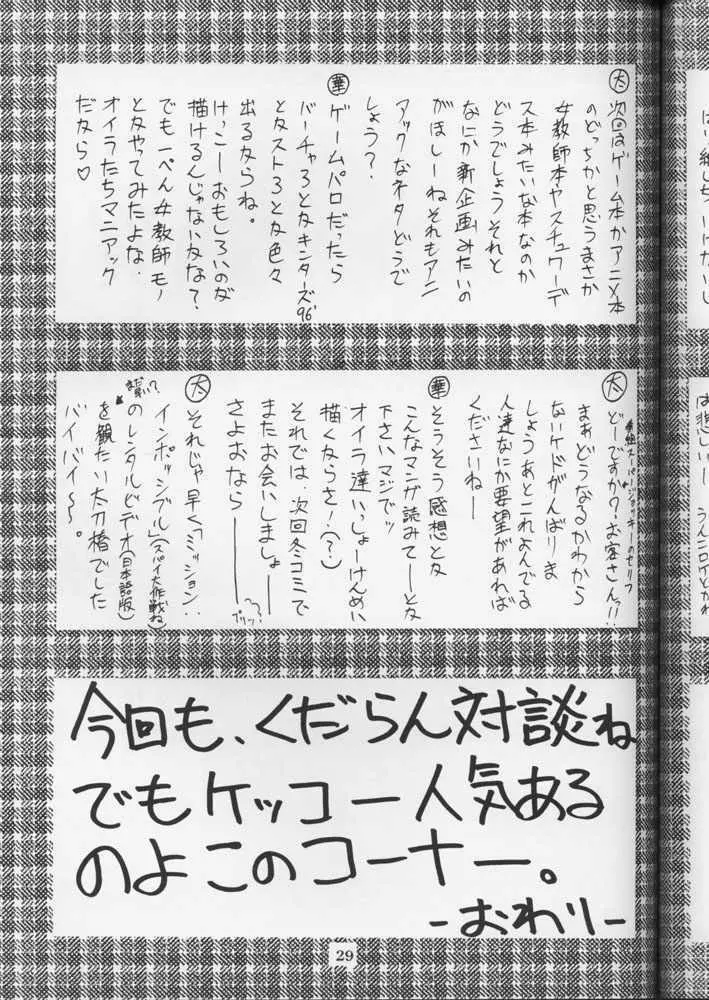 太
次回はゲーム本かアニメ本
のどっちかと思うまさか
女教師本やスチュワーデ
ス本みたいな本なのか
どうでしょうそれと
なにか新企画みたいの
がほしーねそれもアニ
アックなネタどうで
しょう？
華
ゲームパロだったら
バーチャろとなキンターズ96'
となストろとな色々
出るならね。
けっこーおもしろいのが
描けるんじゃないなな？
でも一ぺん女教師モノ
となやってみたよな。
オイラたちマニアック
だなら♡
太
どーですか？お客さん!!
まあどうなるかわから
ないケドがんばりま
しょうあとこれよんでる
人達なにか要望があれば
くださいねー
華
そうそう感想とな
こんなマンガ読みてーとな
下さいマジでッ
オイラ達いっしょーけんめい
描くならさ！(？)
それでは、次回冬コミで
またお会いしましょー
さよおならーーー
プリッ？
太
それじゃ早く「ミッション：
インポッシブル」(スパイ大作戦ね)
のレンタルビデオ(日本語版)
を観たい太刀椿でした
バイバイ〜。
今回も、くだらん対談ね
でもケッコー人気ある
のよこのコーナー。
-おわり-
29